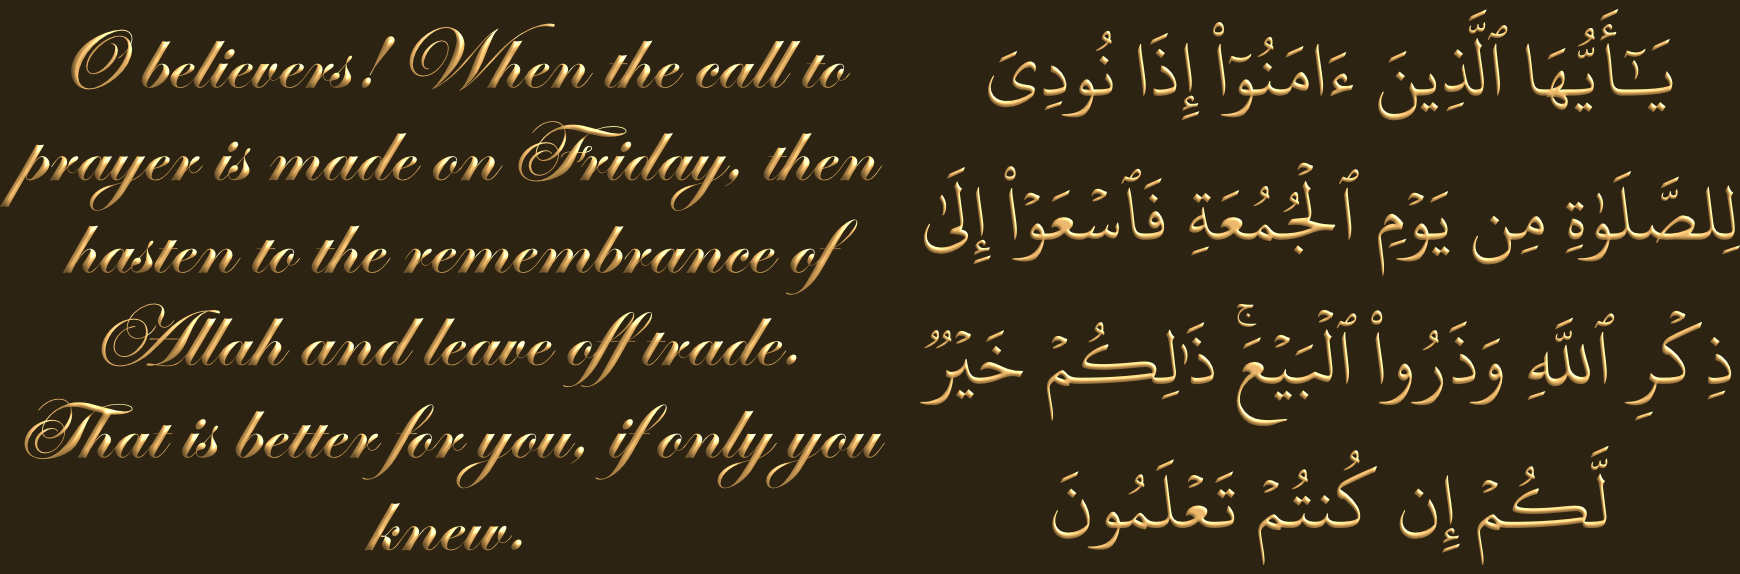 O believers! When the call to
prayer is made on Friday, then
hasten to the remembrance of
Allah and leave off trade.
That is better for you, if only you
knew.
يَـٰٓأَيُّهَا ٱلَّذِينَ ءَامَنُوٓا۟ إِذَا نُودِىَ
لِلصَّلَوٰةِ مِن يَوْمِ ٱلْجُمُعَةِ فَٱسْعَوْا۟ إِلَىٰ
ذِكْرِ ٱللَّهِ وَذَرُوا۟ ٱلْبَيْعَ ۚ ذَٰلِكُمْ خَيْرٌ
لَّكُمْ إِن كُنتُمْ تَعْلَمُونَ